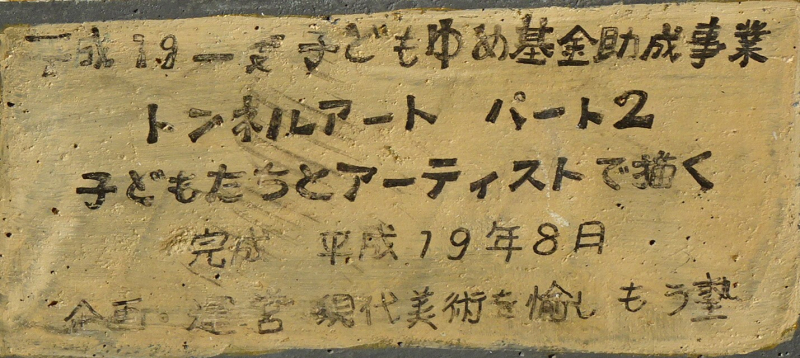 平成19年度子どもゆめ基金助成事業
トンネルアート パート2
子どもたちとアーティストで描く
完成 平成19年8月
企画・運営 現代美術を愉しもう塾